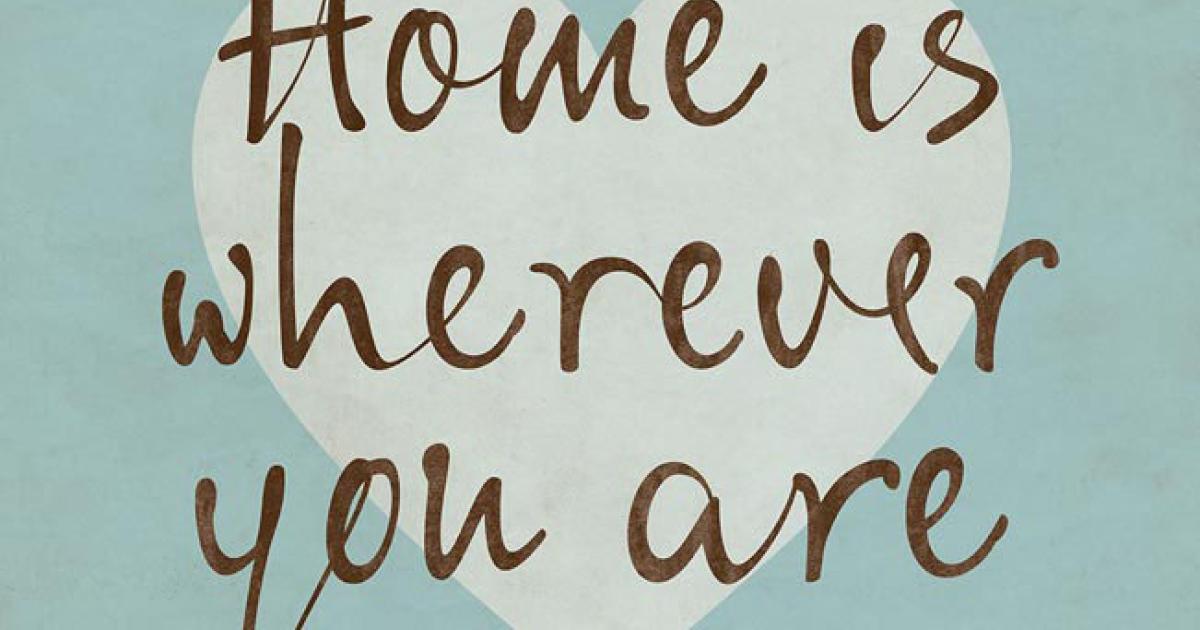 Home is
wherever
you are